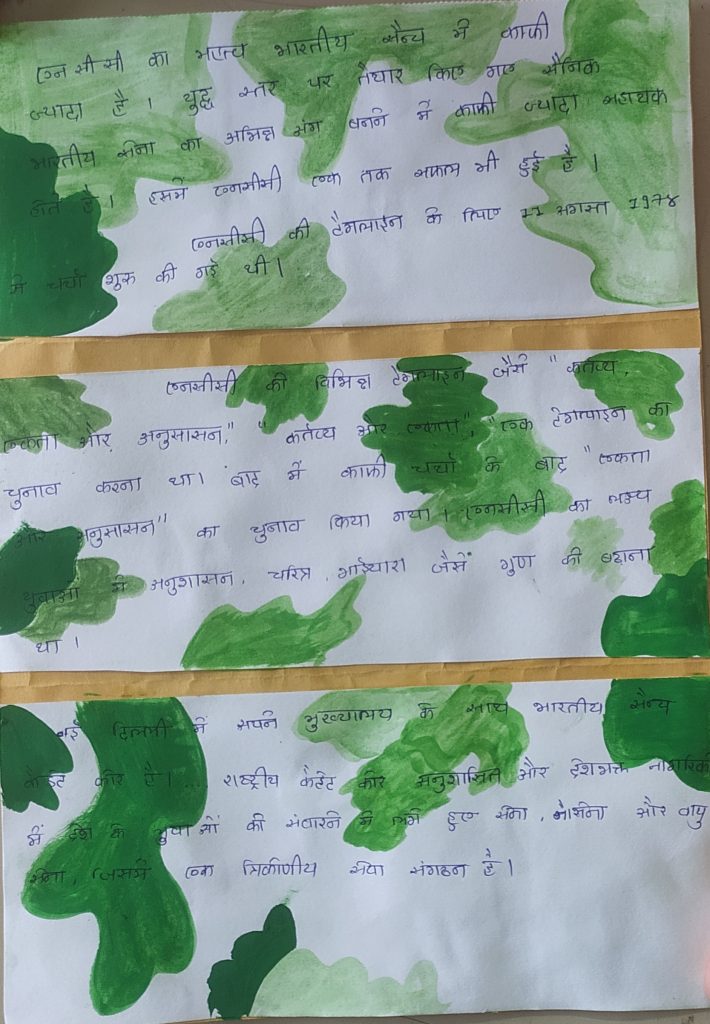 एनसीसी का महत्व भारतीय सैन्य में काफी
ज्यादा है । युद्ध स्तर पर तैयार किए गए सैनिक
भारतीय सेना का अभिन्न अंग बनने में काफी ज्यादा सहायक
होते है । इसमें एनसीसी एक तक सफल भी हुई है ।
एनसीसी की टैगलाईन के लिए 11 अगस्त 1978
से चर्चा शुरु की गई थी ।
एनसीसी की विभिन्न टैगलाइन जैसे "कर्तव्य,
एकता और अनुसासन," "कर्तव्य और एकता", "एक टेगलाइन का
चुनाव करना था। बाद में काफी चर्चा के बाद "एकता
और अनुसासन" का चुनाव किया गया । एनसीसी का लक्ष्य
युवाओं में अनुशासन, चरित्र, भाईचारा जैसें गुण को बढाना
था ।
नई दिल्ली में अपने मुख्यालय के साथ भारतीय सैन्य
कैडेट कोर है। .... राष्ट्रीय कैडेट कोर अनुशासित और देशभक्त नागरिक
में देश के युवाओं को संवारने में लगे हुए सेना, नौसेना और वायु
सेना, जिसमें एक त्रिकोणीय सेवा संगठन है।